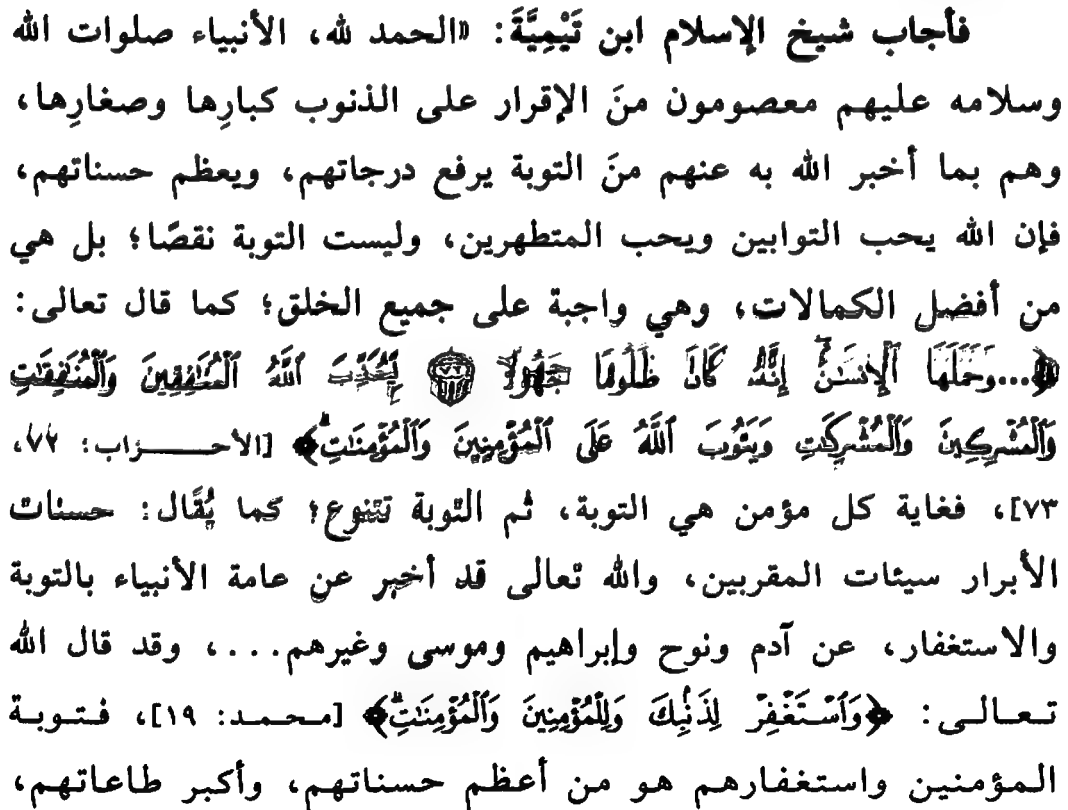 فأجاب شيخ الإسلام ابن تَيْمِيَّةَ: «الحمد لله، الأنبياء صلوات الله
وسلامه عليهم معصومون منَ الإقرار على الذنوب كبارِها وصغارِها،
وهم بما أخبر الله به عنهم منَ التوبة يرفع درجاتهم، ويعظم حسناتهم،
فإن الله يحب التوابين ويحب المتطهرين، وليست التوبة نقصًا؛ بل هي
من أفضل الكمالات، وهي واجبة على جميع الخلق؛ كما قال تعالى:
﴿...وَحَمَلَهَا ٱلْإِنسَٰنُ إِنَّهُۥ كَانَ ظَلُومًا جَهُولًا ۝٧٢ لِّيُعَذِّبَ ٱللَّهُ ٱلْمُنَٰفِقِينَ وَٱلْمُنَٰفِقَٰتِ
وَٱلْمُشْرِكِينَ وَٱلْمُشْرِكَٰتِ وَيَتُوبَ ٱللَّهُ عَلَى ٱلْمُؤْمِنِينَ وَٱلْمُؤْمِنَٰتِ ۗ﴾ [الأحـــزاب: ٧٢،
٧٣]، فغاية كل مؤمن هي التوبة، ثم التوبة تتنوع؛ كما يُقَال: حسنات
الأبرار سيئات المقربين، والله تعالى قد أخبر عن عامة الأنبياء بالتوبة
والاستغفار، عن آدم ونوح وإبراهيم وموسى وغيرهم...، وقد قال الله
تـعـالـى: ﴿وَٱسْتَغْفِرْ لِذَنۢبِكَ وَلِلْمُؤْمِنِينَ وَٱلْمُؤْمِنَٰتِ ۗ﴾ [مـحـمـد: ١٩]، فـتـوبـة
المؤمنين واستغفارهم هو من أعظم حسناتهم، وأكبر طاعاتهم،